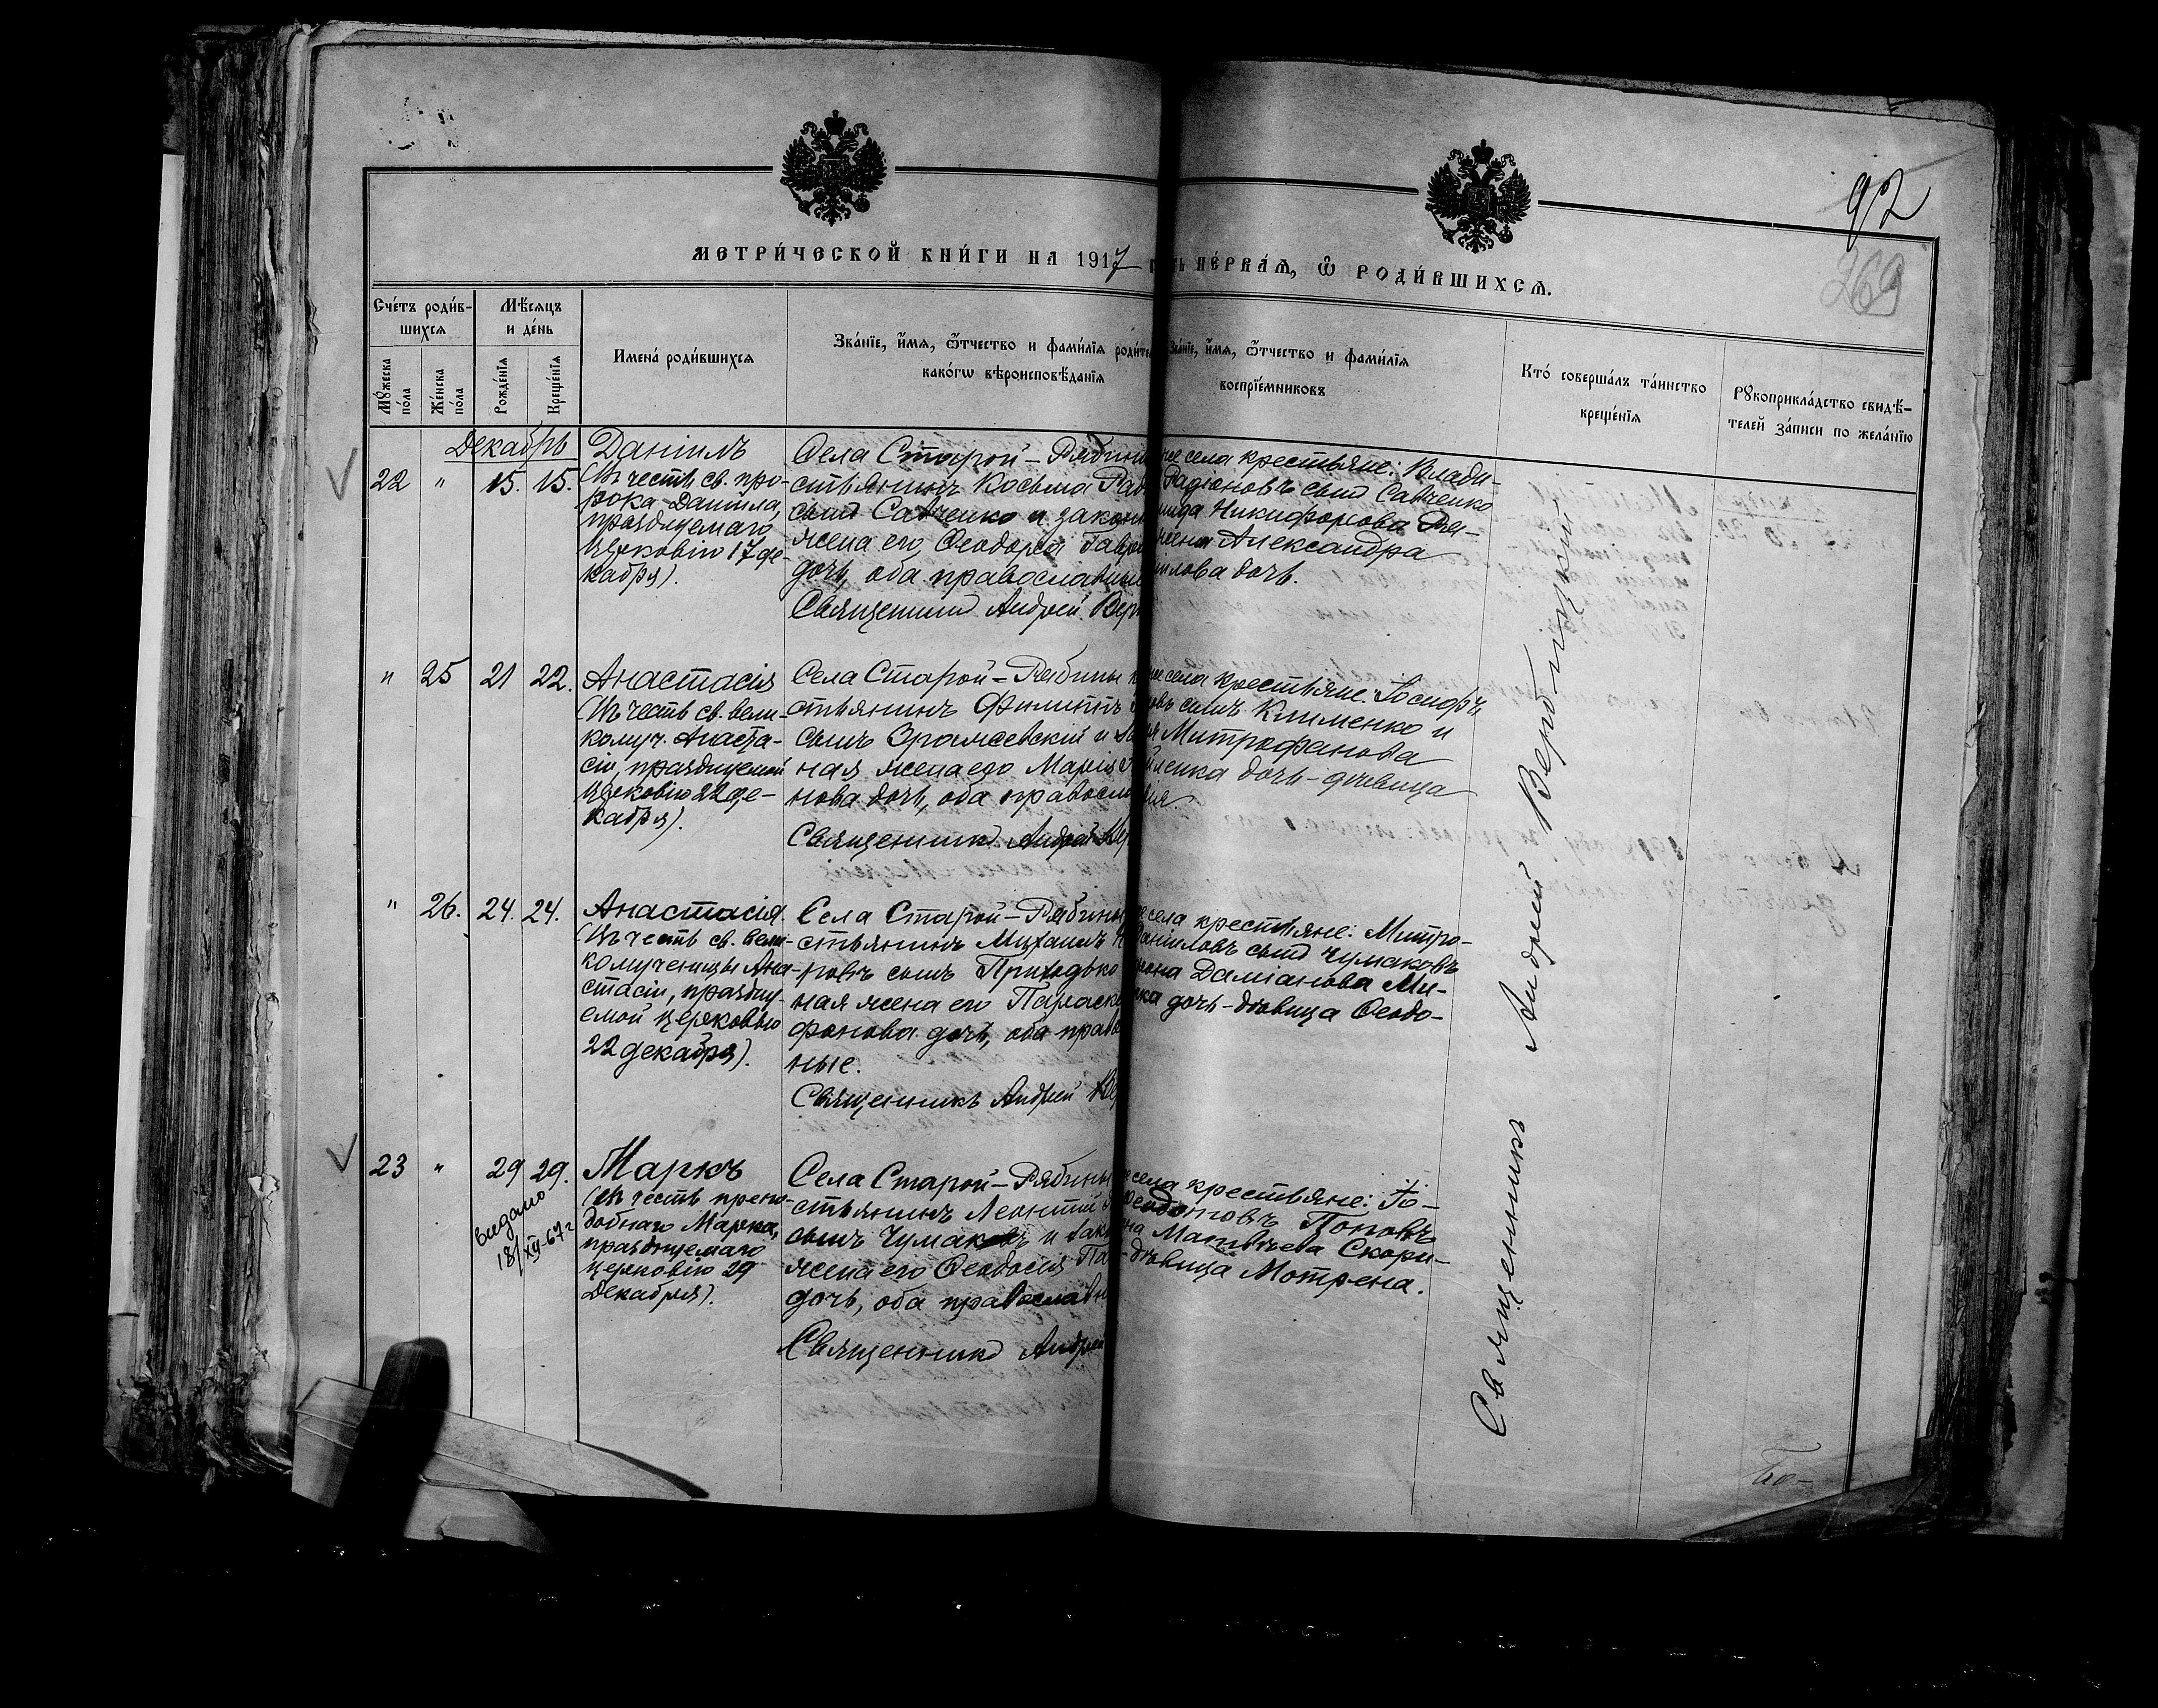 92
269
МЕТРИ́ЧЕСКОЙ КНИ́ГИ НА 1917
ПЕ́РВАѦ, Ѿ РОДИ́ВШИХСѦ.
Сче́тъ роди́в-
шихсѧ
Мѣ́сѧцъ
и де́нь
Мꙋ́жеска по́ла
Же́нска по́ла
Рожде́нїѧ
Креще́нїѧ
Имена́ роди́вшихсѧ
Зва́нїе, и́мѧ, ѿ́тчество и фами́лїѧ
како́гѡ вѣроисповѣ́данїѧ
Зва́нїе, и́мѧ, ѿ́тчество и фами́лїѧ
воспрїе́мниковъ
Кто́ соверша́лъ та́инство
креще́нїѧ
Рꙋкоприкла́дство свидѣ́-
телей за́писи по жела́нїю
Декабрь
22 " 15. 15.
Даніилъ
(Въ честь св. про-
рока Даніила,
празднуемаго
Церковію 17 де-
кабря).
Села Старой-Рябины
стьянинъ Косьма
сынъ Савченко и закон
жена его Ѳеодора
дочь, оба православные
Священникъ Андрей
села крестьяне: Влади-
Радіоновъ сынъ Савченко
Никифорова
жена Александра
дочь.
" 25 21 22.
Анастасія
(Въ честь св. вели-
комуч. Анаста-
сіи, празднуемой
Церковію 22 де-
кабря).
Села Старой-Рябины
стьянинъ Филиппъ
сынъ
ная жена его Марія
нова дочь, оба правосла
Священникъ Андрей
села крестьяне: Іосифъ
сынъ Клименко и
Митрофанова
дочь-дѣвица
" 26. 24. 24.
Анастасія.
(Въ честь св. вели-
комученицы Ана-
стасіи, праздну-
емой церковью
22 декабря).
Села Старой-Рябины
стьянинъ Михаилъ
ровъ сынъ Приходько
ная жена его Параске
фонова дочь, оба право
ные.
Священникъ Андрей
села крестьяне: Митро-
Даніиловъ сынъ Чумаковъ
Даміанова Ми-
дочь-дѣвица Ѳеодо-
23 " 29 29.
выдано
18/XII-67 г
Маркъ
(Въ честь препо-
добнаго Марка,
празднуемаго
церковію 29
Декабря).
Села Старой-Рябины
стьянинъ Леонтій
сынъ Чумаковъ и зак
жена его Ѳеодосія
дочь, оба православ
Священникъ Андрей
села крестьяне: Іо-
Поповъ
Матвѣева Скори-
дѣвица Мотрона.
Священникъ Андрей Вербицкій